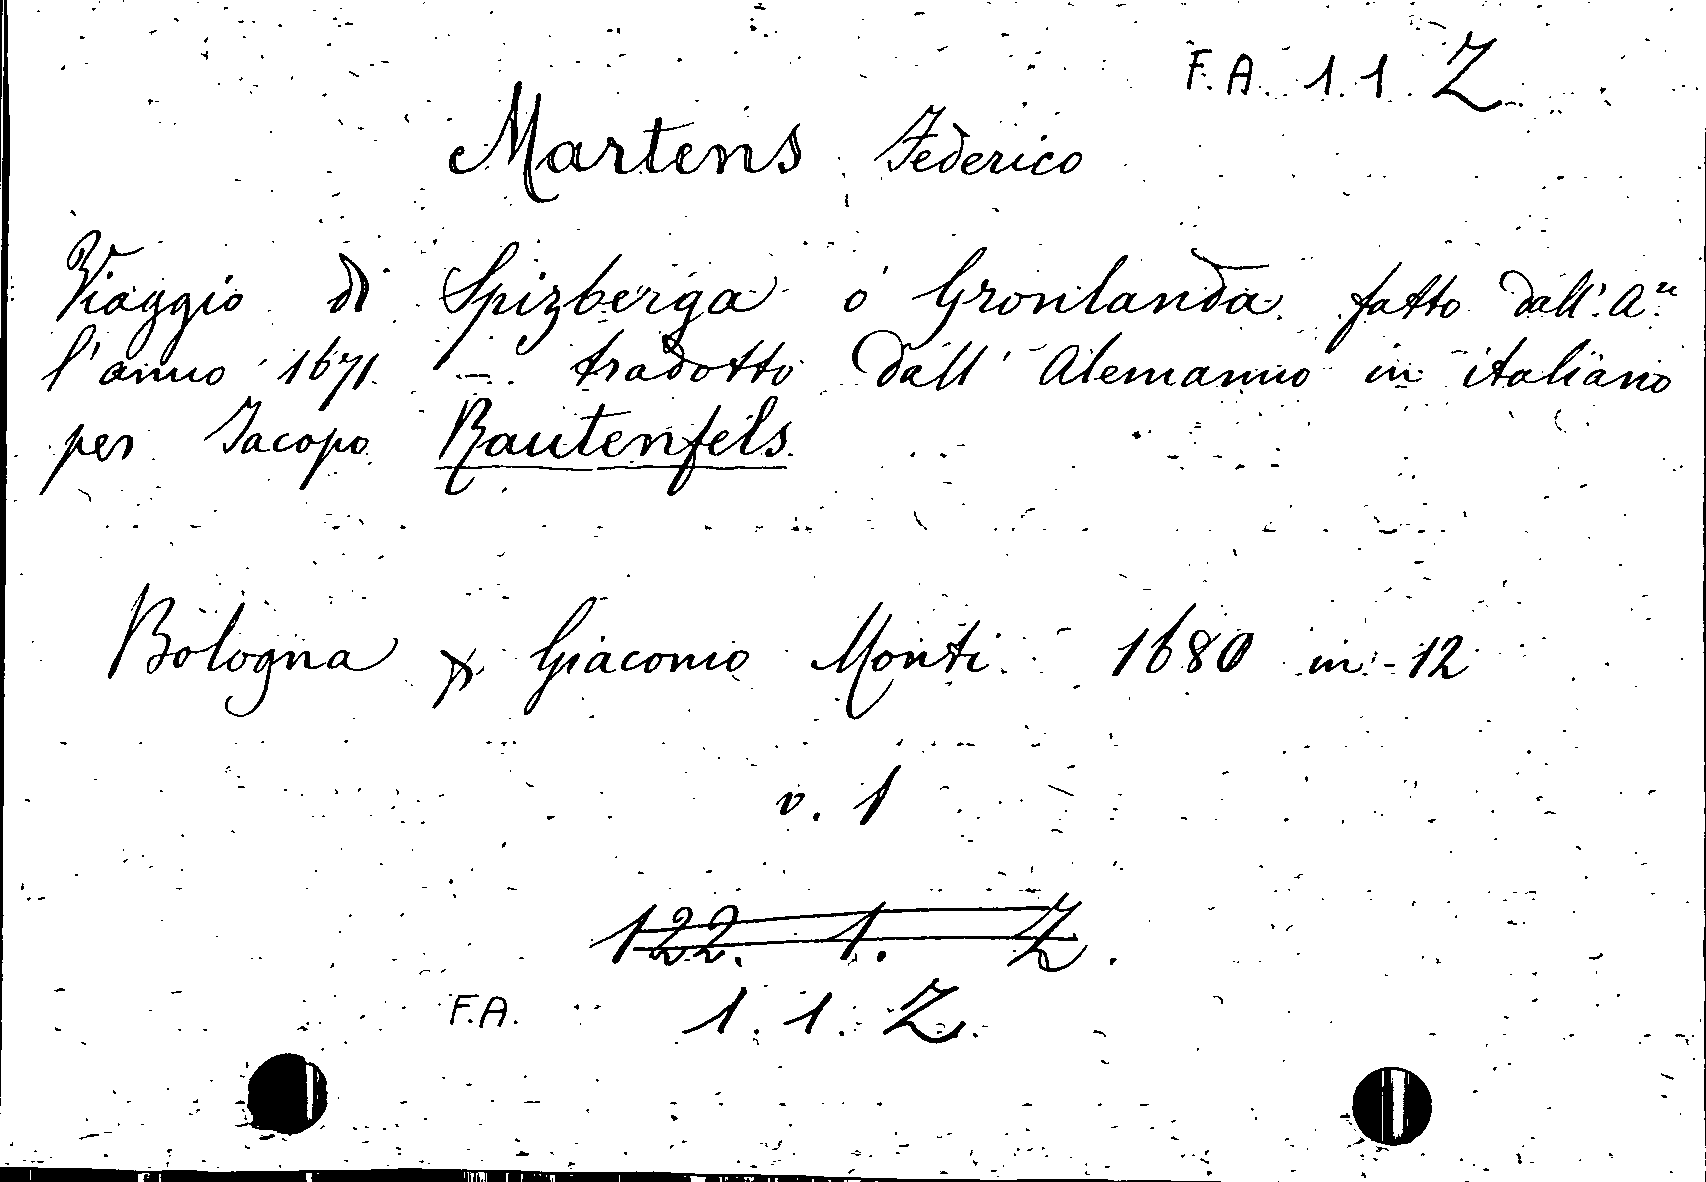 F. A. 1. 1. Z
Martens Federico
Viaggio di Spizberga o Gronlanda fatto dall'. A.re
l'anno 1671. – tradotto dall' Alemanno in italiano
per Jacopo Rautenfels.
Bologna p. Giacomo Monti 1680 in-12
v. 1
122. 1. Z.
F.A. 1. 1. Z.